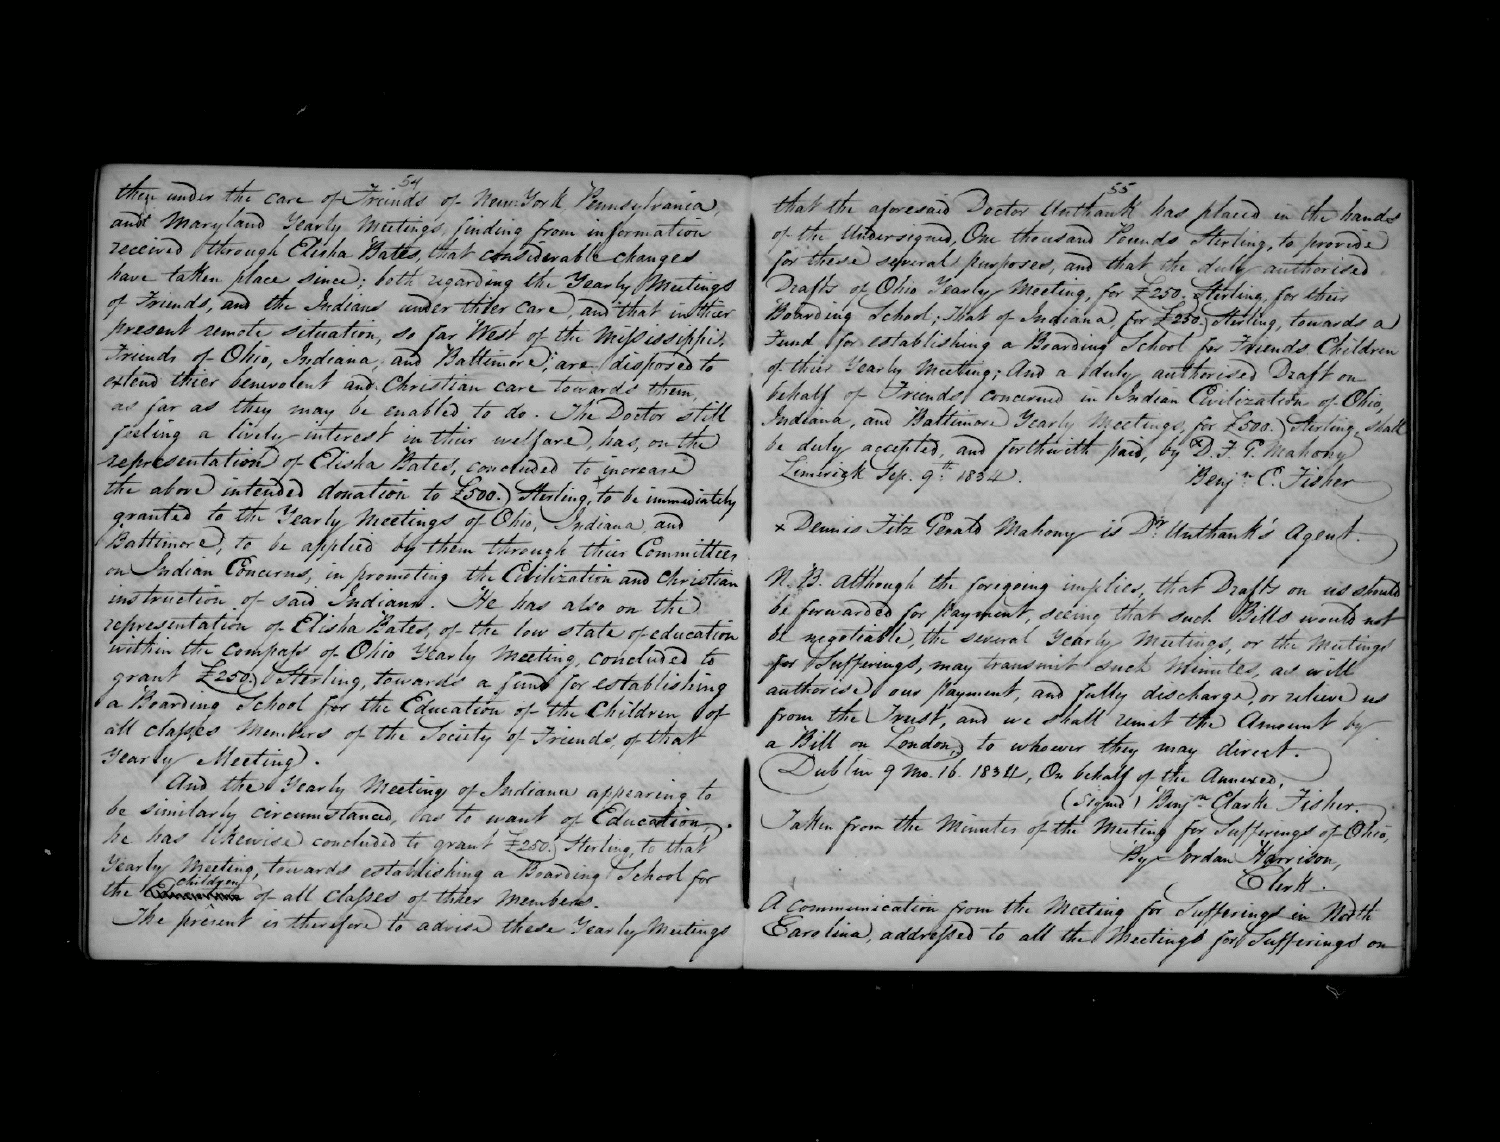 54
then under the care of Friends of New-York Pennsylvania,
and Maryland Yearly Meetings, finding from information
received through Elisha Bates, that considerable changes
have taken place since; both regarding the Yearly Meetings
of Friends, and the Indians under thier care, and that in thier
present remote situation, so far West of the Mississippi,
Friends of Ohio, Indiana, and Baltimore, are disposed to
extend thier benevolent and Christian care towards them,
as far as they may be enabled to do. The Doctor still
feeling a lively interest in thier welfare, has, on the
representation of Elisha Bates, concluded to increase
the above intended donation to £500. Sterling, to be immediately
granted to the Yearly Meetings of Ohio, Indiana, and
Baltimore, to be applied by them through thier Committees
on Indian Concerns, in promoting the Civilization and Christian
instruction of said Indians. He has also on the
representation of Elisha Bates, of the low state of education
within the compass of Ohio Yearly Meeting, concluded to
grant £250. Sterling, towards a fund for establishing
a Boarding School for the Education of the Children of
all classes members of the Society of Friends, of that
Yearly Meeting.
And the Yearly Meeting of Indiana appearing to
be similarly circumstanced, as to want of Education,
he has likewise concluded to grant £250. Sterling, to that
Yearly Meeting, towards establishing a Boarding School for
the children of all classes of thier members.
The present is therefore to advise these Yearly Meetings
55
that the aforesaid Doctor Unthank has placed in the hands
of the Undersigned, One thousand Pounds Sterling, to provide
for these several purposes, and that the duly authorised
Drafts of Ohio Yearly Meeting, for £250. Sterling, for their
Boarding School; That of Indiana, for £250. Sterling, towards a
Fund for establishing a Boarding School for Friends Children
of thier Yearly Meeting; And a duly authorised Draft on
behalf of Friends concerned in Indian Civilization of Ohio,
Indiana, and Baltimore Yearly Meetings, for £500. Sterling, shall
be duly accepted, and forthwith paid, by x D. F. G. Mahony
Limerick Sep. 9th 1834. Benjn. C. Fisher
x Dennis Fitz Gerald Mahony is Dr. Unthank's Agent.
N. B. Although the foregoing implies, that Drafts on us should
be forwarded for payment, seeing that such Bills would not
be negotiable, the several Yearly Meetings, or the Meetings
for Sufferings, may transmit such Minutes, as will
authorise our payment, and fully discharge, or relieve us
from the Trust, and we shall remit the Amount by
a Bill on London, to whoever they may direct.
Dublin 9 mo. 16. 1834, On behalf of the Annexed,
(Signed) Benjn. Clarke Fisher.
Taken from the Minutes of the Meeting for Sufferings of Ohio,
By Jordan Harrison,
Clerk.
A communication from the Meeting for Sufferings in North
Carolina, addressed to all the Meetings for Sufferings on